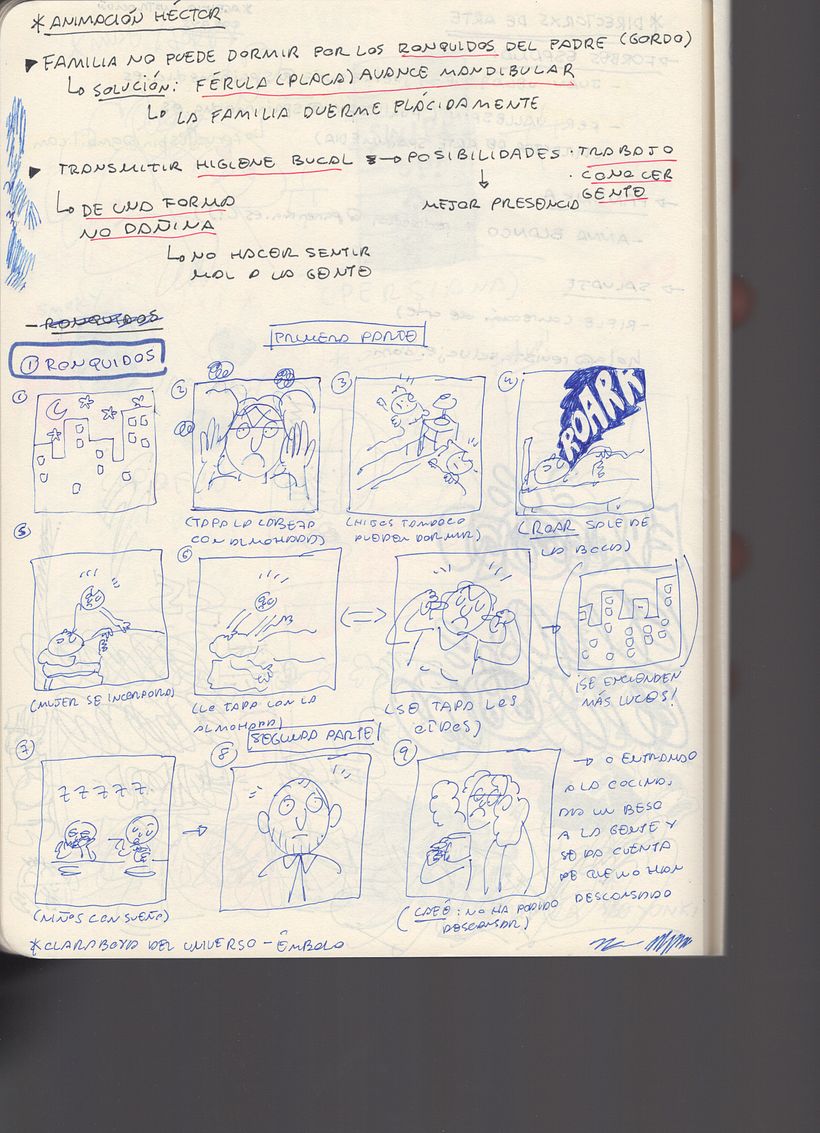 *ANIMACIÓN HÉCTOR
FAMILIA NO PUEDE DORMIR POR LOS RONQUIDOS DEL PADRE (GORDO)
SOLUCIÓN: FÉRULA (PLACA) AVANCE MANDIBULAR
LA FAMILIA DUERME PLÁCIDAMENTE
TRANSMITIR HIGIENE BUCAL POSIBILIDADES · TRABAJO
· CONOCER
GENTE
MEJOR PRESENCIA
DE UNA FORMA
NO DAÑINA
NO HACER SENTIR
MAL A LA GENTE
- RONQUIDOS
PRIMERA PARTE
① RONQUIDOS
① ② ③ ④
ROARR
(TAPA LA CABEZA
CON ALMOHADA)
(HIJOS TAMPOCO
PUEDEN DORMIR)
(ROAR SALE DE
LA BOCA)
⑤ ⑥
(MUJER SE INCORPORA)
(LE TAPA CON LA
ALMOHADA)
(SE TAPA LOS
OÍDOS)
¡SE ENCIENDEN
MÁS LUCES!
SEGUNDA PARTE
⑦ ⑧ ⑨
ZZZZZ
(NIÑOS CON SUEÑO)
(CAFÉ: NO HA PODIDO
DESCANSAR)
→ O ENTRANDO
A LA COCINA,
DA UN BESO
A LA GENTE Y
SE DA CUENTA
DE QUE NO HAN
DESCANSADO
*CLARABOYA DEL UNIVERSO - ÉMBOLO